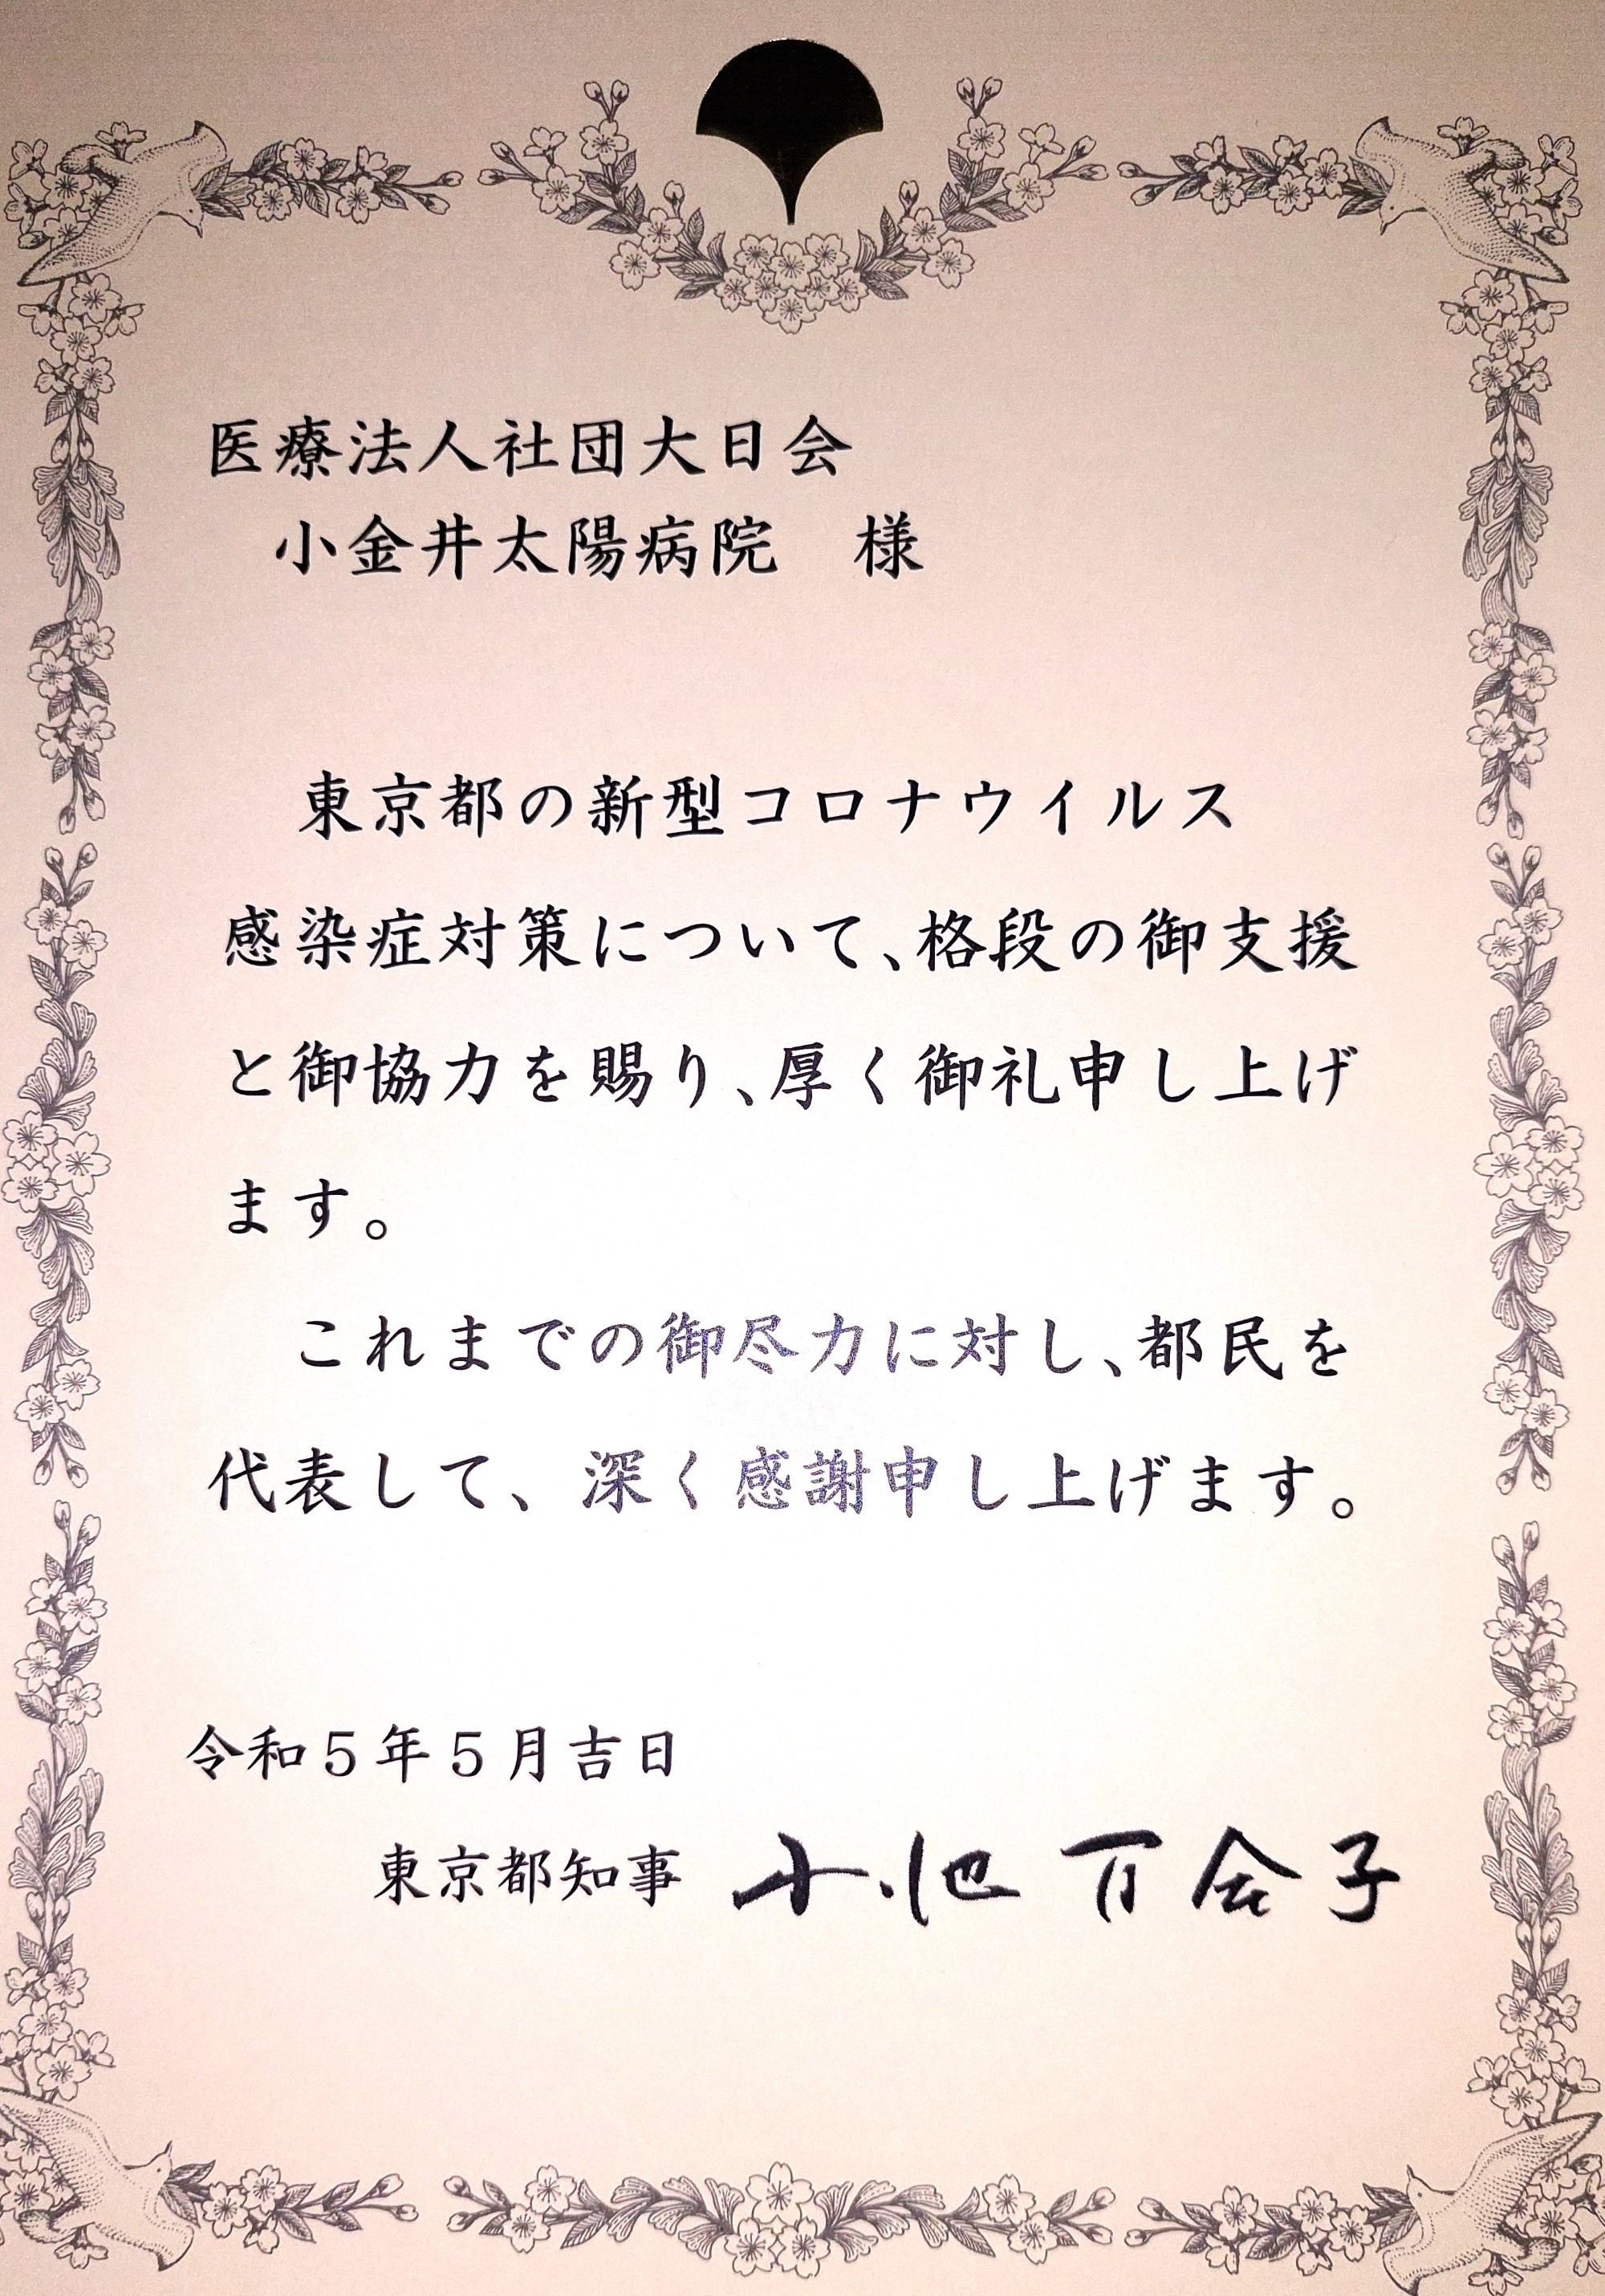 医療法人社団大日会
小金井太陽病院　様
東京都の新型コロナウイルス
感染症対策について、格段の御支援
と御協力を賜り、厚く御礼申し上げ
ます。
これまでの御尽力に対し、都民を
代表して、深く感謝申し上げます。
令和５年５月吉日
東京都知事 小池百合子